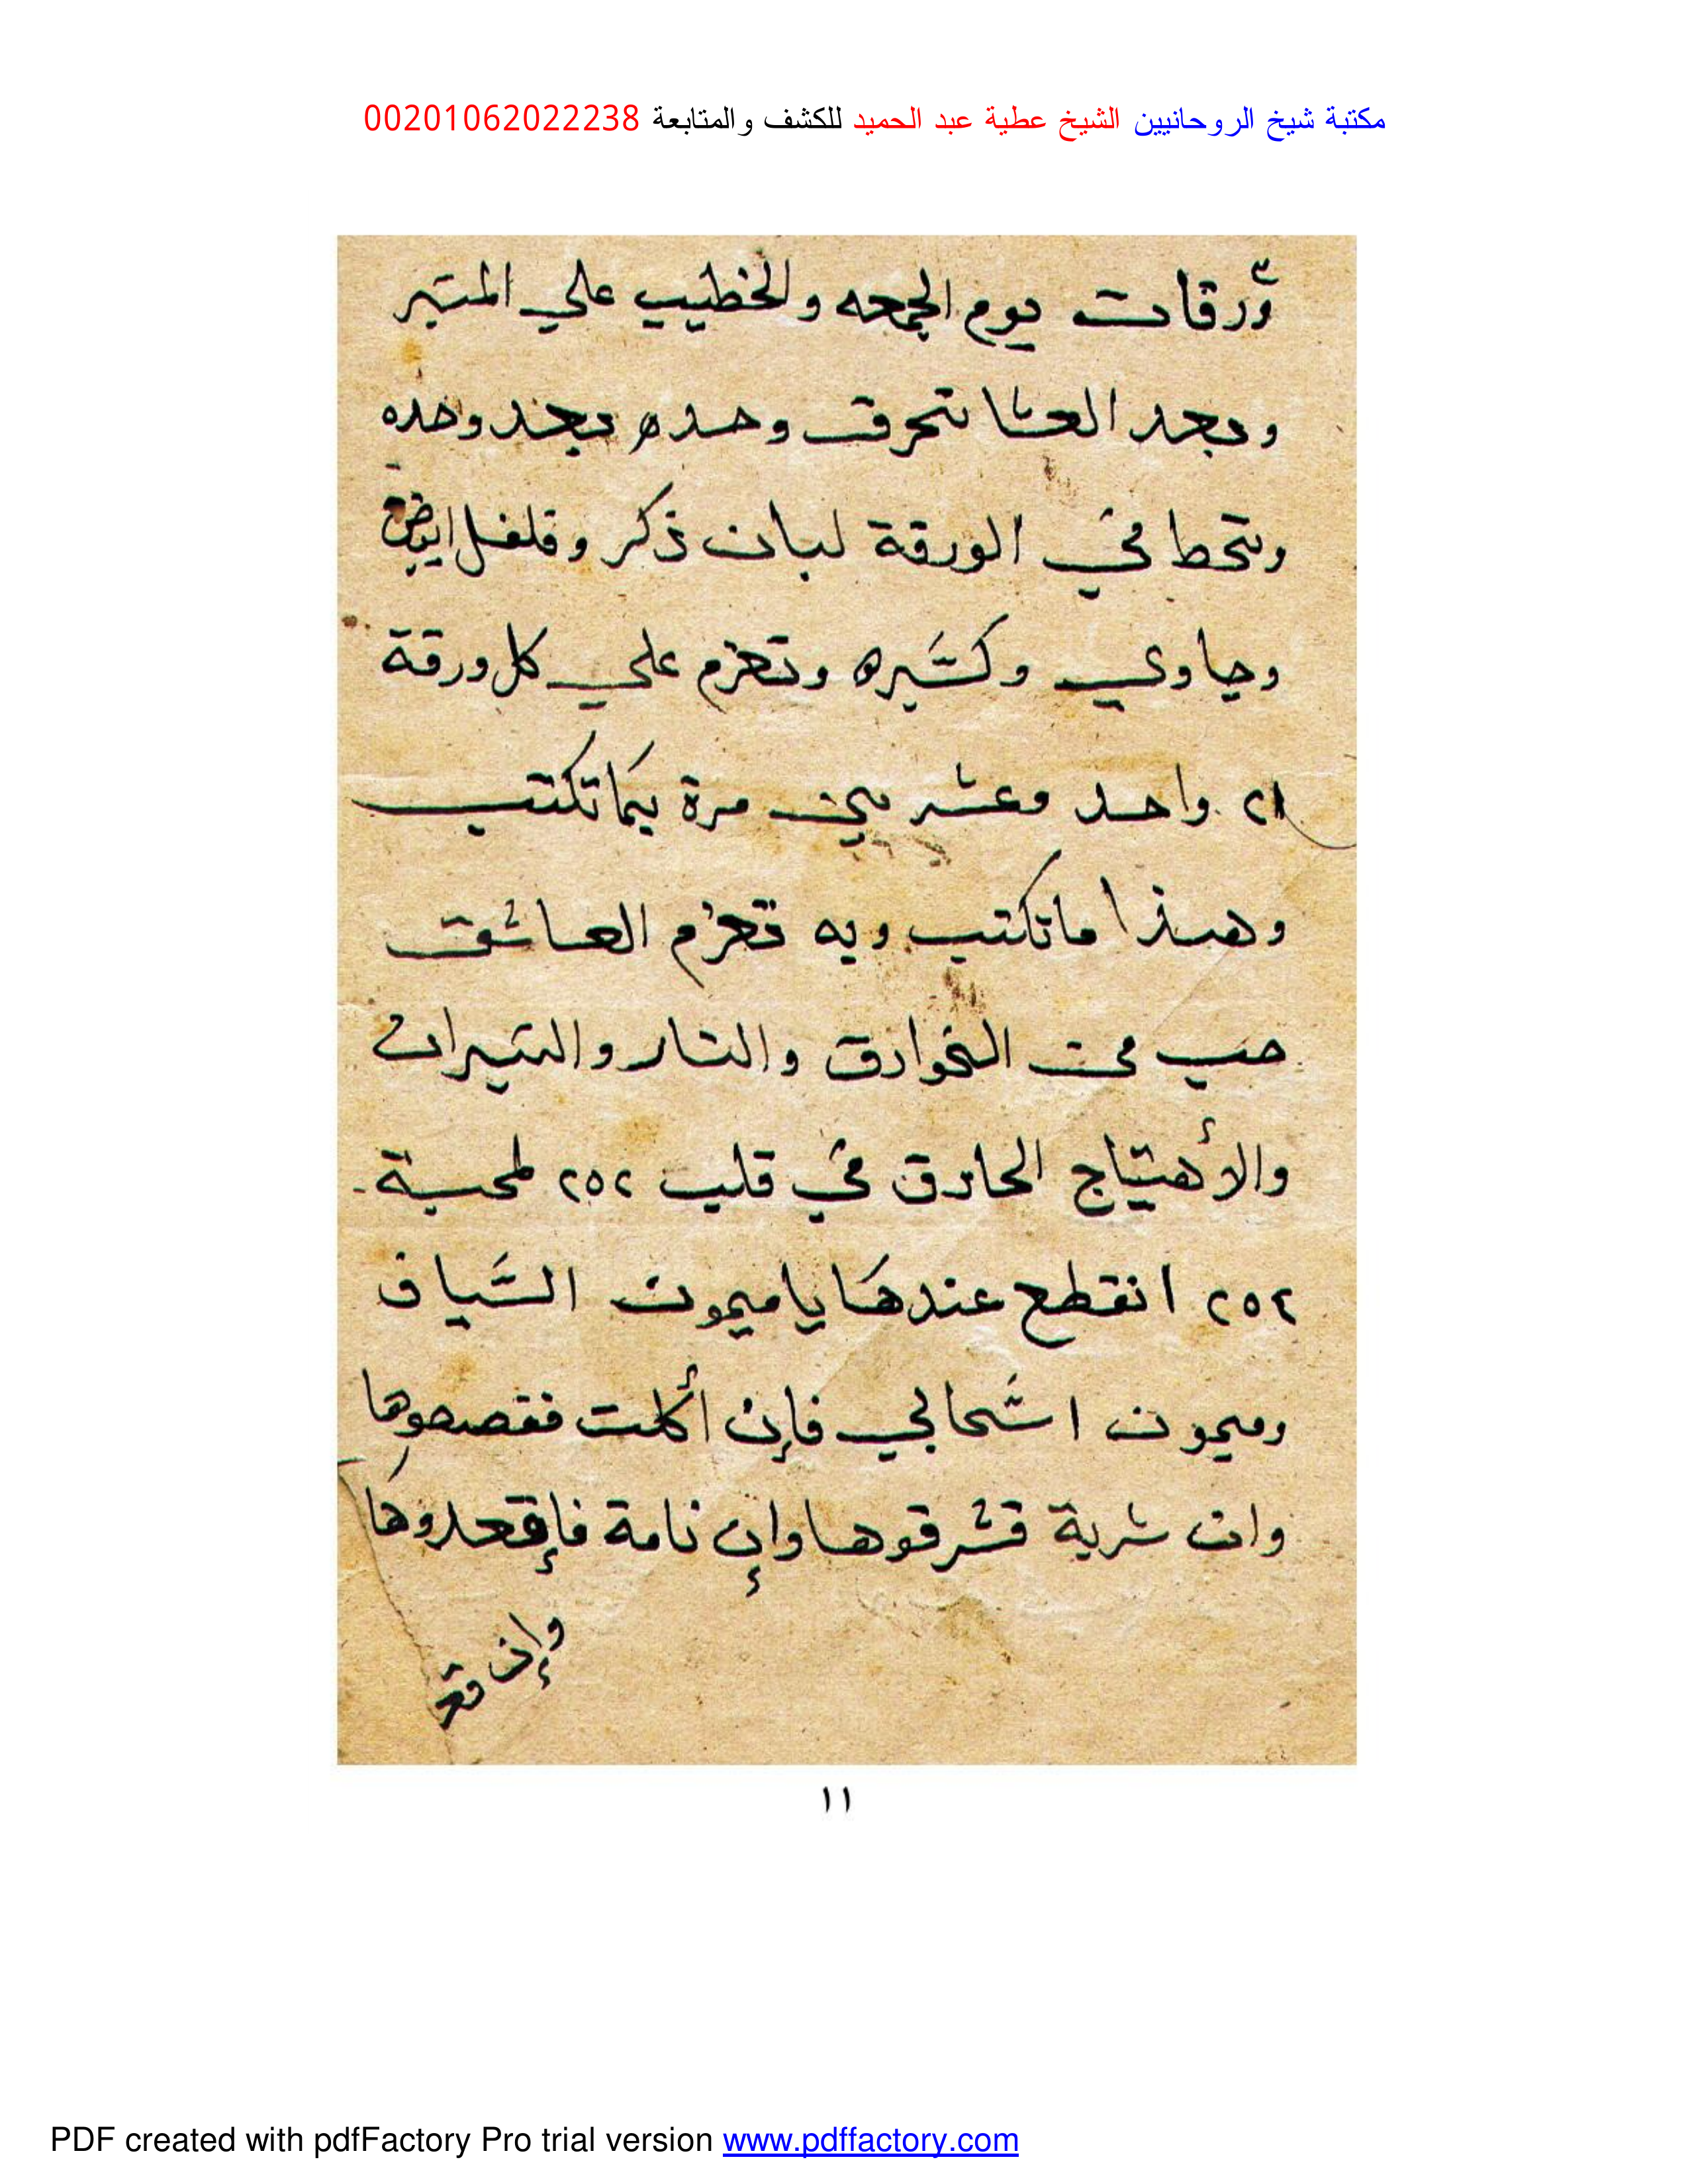 مكتبة شيخ الروحانيين الشيخ عطية عبد الحميد للكشف والمتابعة 00201062022238
٣ ورقات يوم الجمعه والخطيب علي المنبر
وبعد العشا تحرق وحده بعد وحده
وتحط في الورقة لبان ذكر وفلفل ابيض
وجاوي وكسبره وتعزم علي كل ورقة
٢١ واحد وعشرين مرة بما تكتب
وهذا ما تكتب وبه تعزم العاشق
حب من الخوارق والنار والنيران
والأهتياج الحارق في قلب ٢٥٢ لمحبة
٢٥٢ انقطع عندها يا ميمون السياف
وميمون اسحابي فإن أكلت فقصصوها
وان شربة فشرقوها وإن نامة فإقعدوها
وإن قع
١١
PDF created with pdfFactory Pro trial version www.pdffactory.com